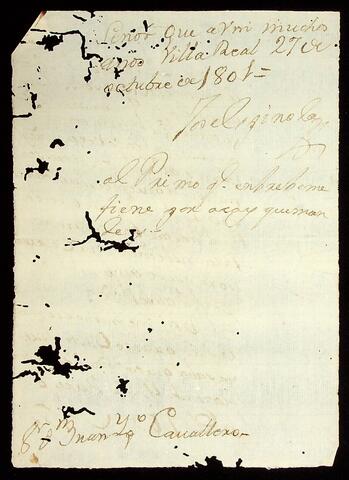 Señor que a Vm muchos
años Villa Real 27 de
octubre de 1801=
Jose Espinola
al Primo q.
tiene por acay queman
de
S.r D.n Juan Cavallero